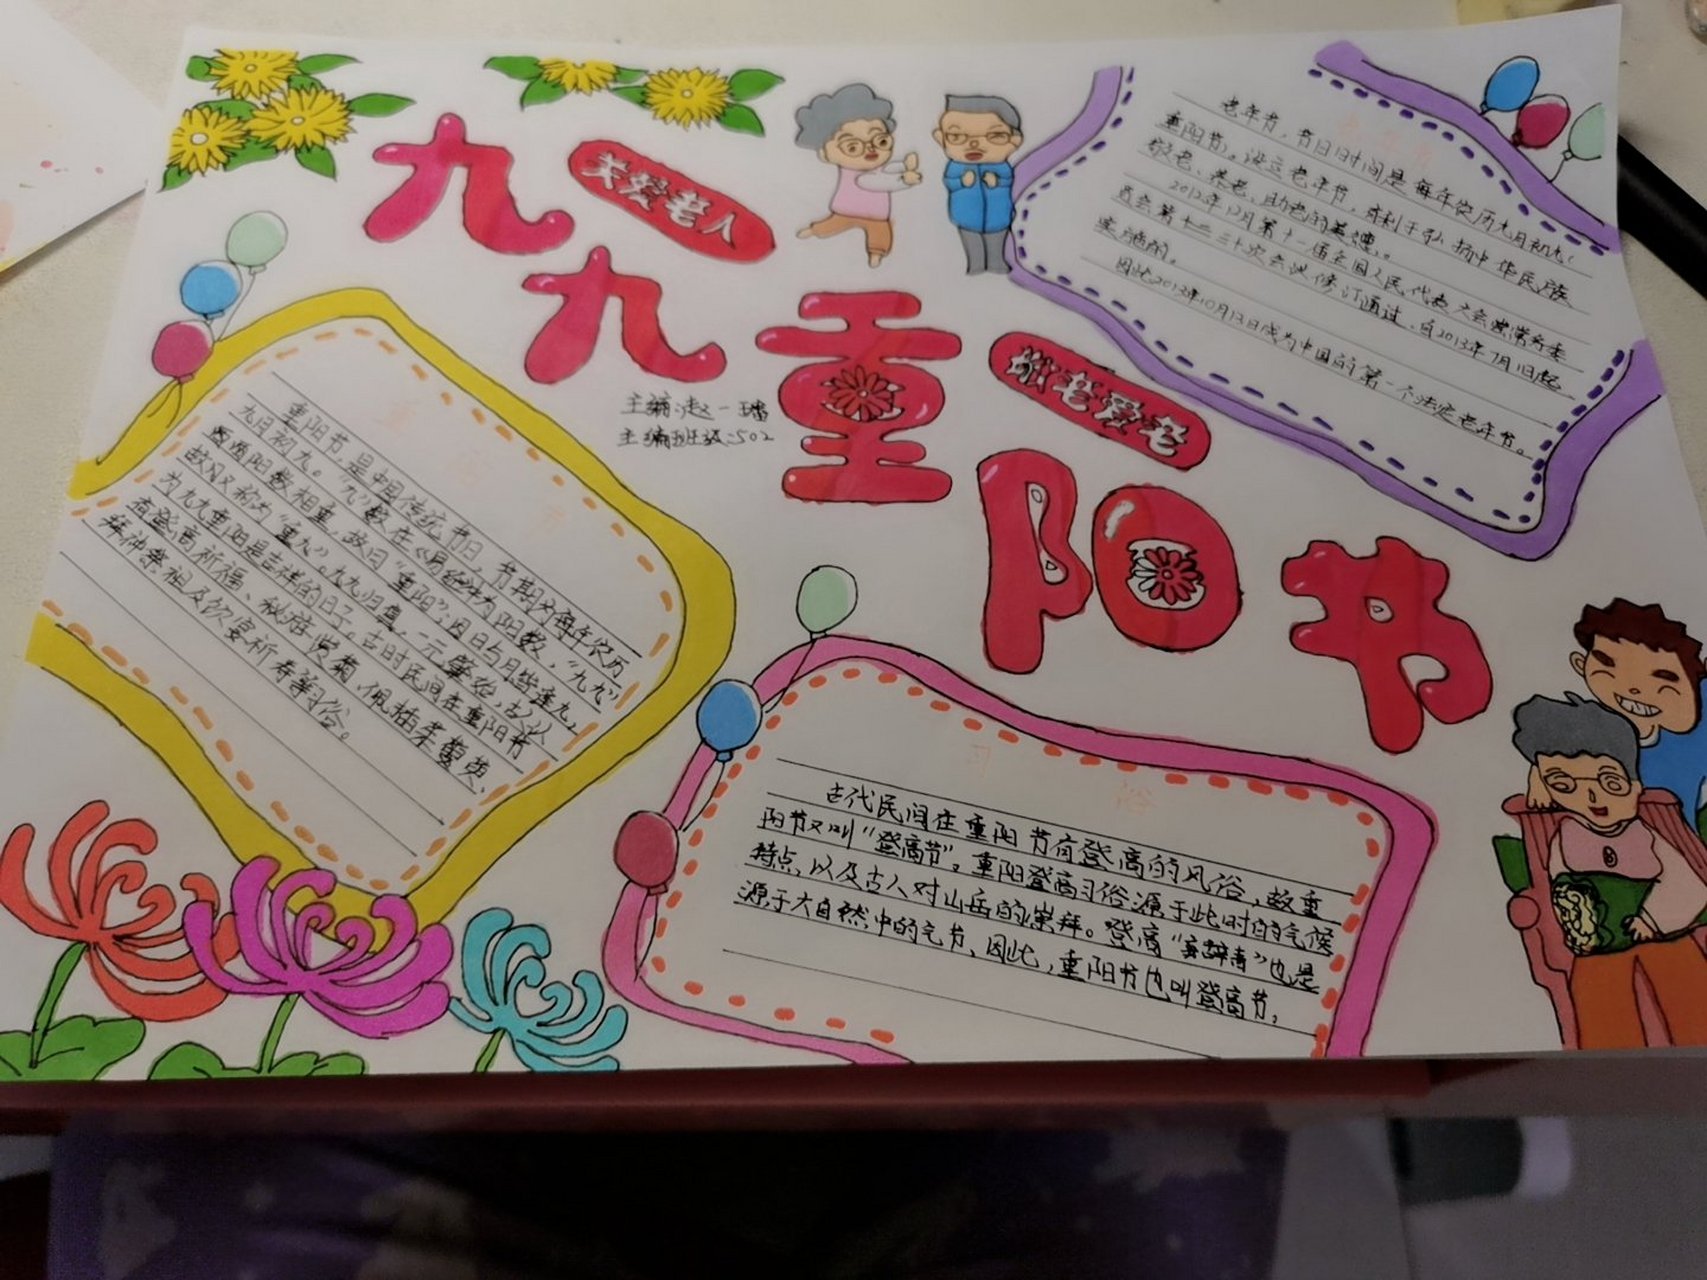 九九重阳节
关爱老人
敬老爱老
主编:赵一
主编班级:502
重阳节,是中国传统节日,节期为每年农历
九月初九。“九”数在《易经》中为阳数,“九九”
两阳数相重,故曰“重阳”;因日与月皆逢九,
故又称为“重九”。九九归真,一元肇始,古人认
为九九重阳是吉祥的日子。古时民间在重阳节
有登高祈福、秋游赏菊、佩插茱萸、
拜神祭祖及饮宴祈寿等习俗。
老年节,节日日时间是每年农历九月初九(
重阳节)。设立老年节,有利于弘扬中华民族
敬老、养老、助老的美德。
2012年12月第十一届全国人民代表大会常务委
员会第十三十次会议修订通过,自2013年7月1日起
实施的。
因此2013年10月13日成为中国的第一个法定老年节。
习俗
古代民间在重阳节有登高的风俗,故重
阳节又叫“登高节”。重阳登高习俗源于此时的气候
特点,以及古人对山岳的崇拜。登高“辞青”也是
源于大自然中的元节,因此,重阳节也叫登高节,